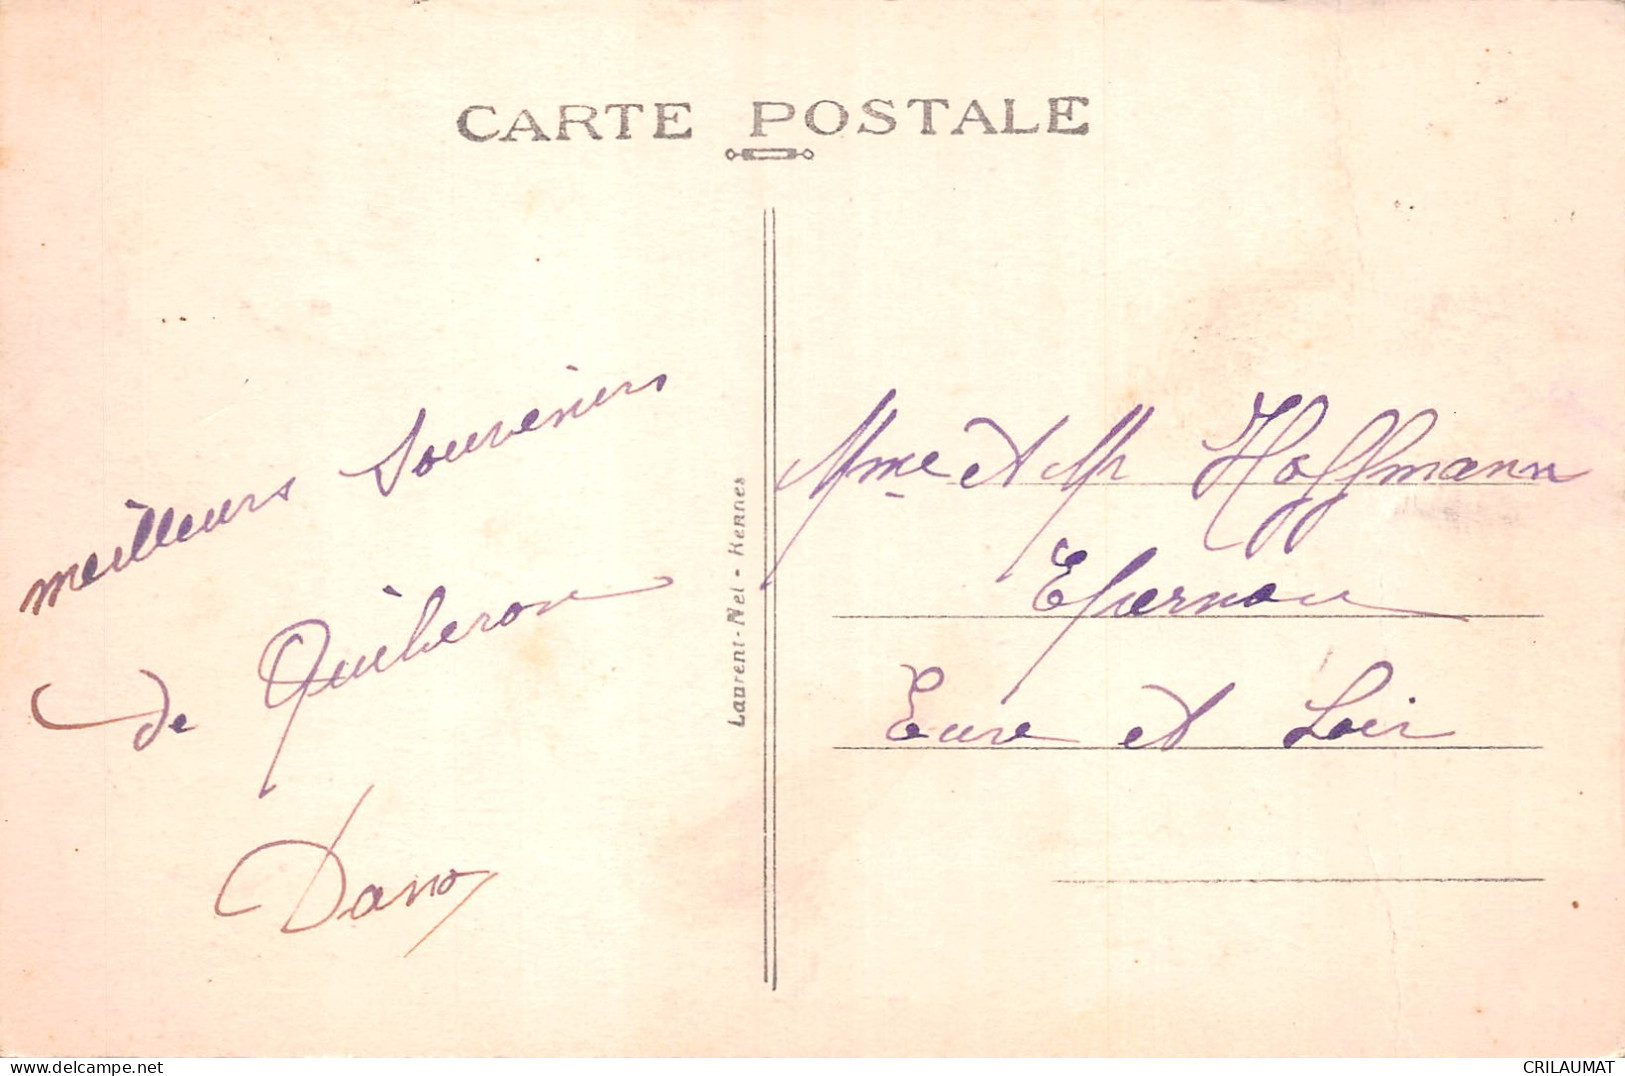 CARTE POSTALE
meilleurs souvenirs
de Quiberon
Dano
Laurent-Nel - Rennes
Mme et Mr Hoffmann
Epernon
Eure et Loir
CRILAUMAT